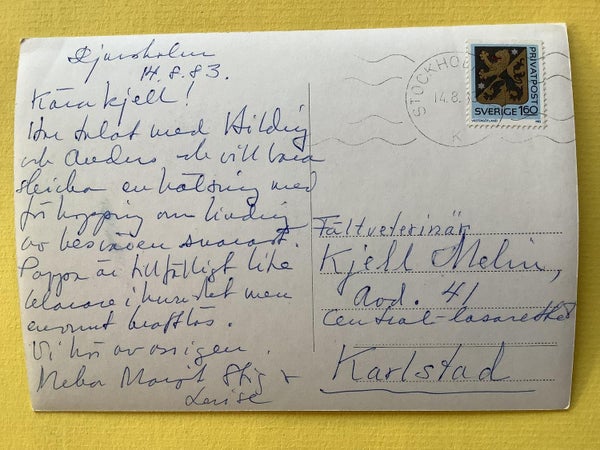 Djursholm
14.8.83.
Kära Kjell!
Har talat med Hilding
och Anders och vill bara
skicka en hälsning med
förhoppning om lindring
av besvären snarast.
Pappa är tillfälligt lite
klarare i huvudet men
enormt kraftlös.
Vi hör av oss igen.
Margit Stig +
STOCKHOLM
14.8.83
K
PRIVATPOST
SVERIGE 160
Fältveterinär
Kjell Melin,
Avd. 41
Central-lasarettet
Karlstad